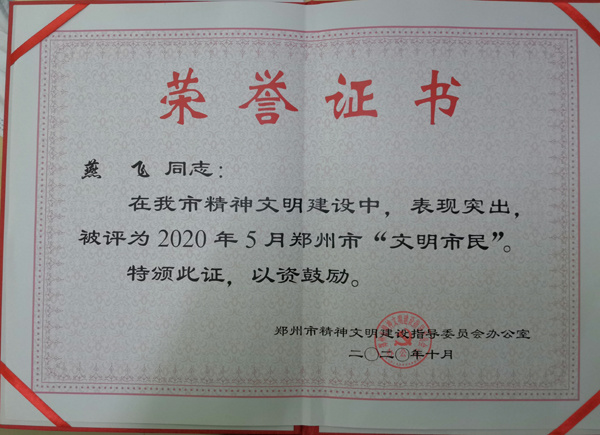 荣誉证书
燕飞同志：
在我市精神文明建设中，表现突出，
被评为2020年5月郑州市“文明市民”。
特颁此证，以资鼓励。
郑州市精神文明建设指导委员会办公室
二〇二〇年十月